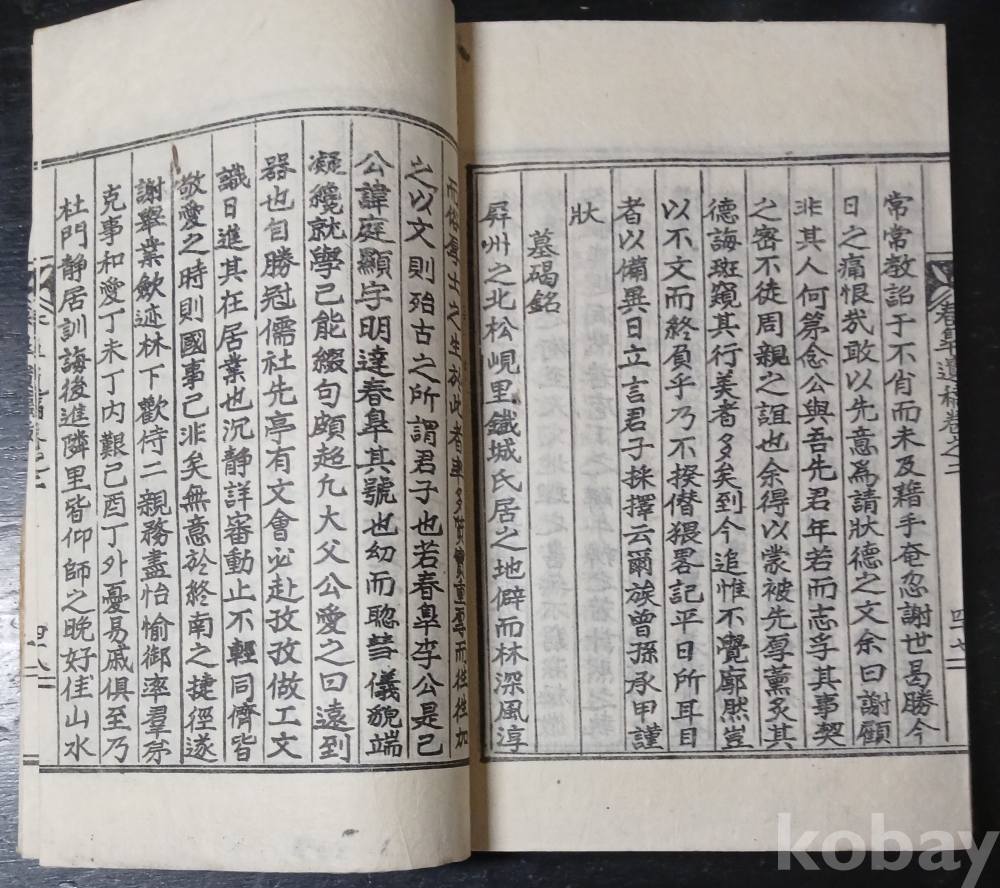 常常教詔于不肖而未及藉手奄忽謝世曷勝今
日之痛恨哉敢以先意爲請狀德之文余曰謝顧
非其人何第念公與吾先君年若而志孚其事契
之密不徒周親之誼也余得以蒙被先厚薰炙其
德誨斑窺其行美者多矣到今追惟不覺廓然豈
以不文而終負乎乃不揆僭猥畧記平日所耳目
者以備異日立言君子採擇云爾族曾孫承甲謹
狀
墓碣銘
屛州之北松峴里鐵城氏居之地僻而林深風淳
春皐遺稿卷之二
四七
而俗厚士之生於此者率多質實重厚而往往加
之以文則殆古之所謂君子也若春皐李公是已
公諱庭顯字明達春皐其號也幼而聡彗儀貌端
凝纔就學已能綴句頗超凡大父公愛之曰遠到
器也自勝冠儒社先亭有文會必赴孜孜做工文
識日進其在居業也沉静詳審動止不輕同儕皆
敬愛之時則國事已非矣無意於終南之捷徑遂
謝擧業歛迹林下歡侍二親務盡怡愉御率羣弟
克事和愛丁未丁内艱己酉丁外憂易戚俱至乃
杜門静居訓誨後進隣里皆仰師之晩好佳山水
四八
kobay